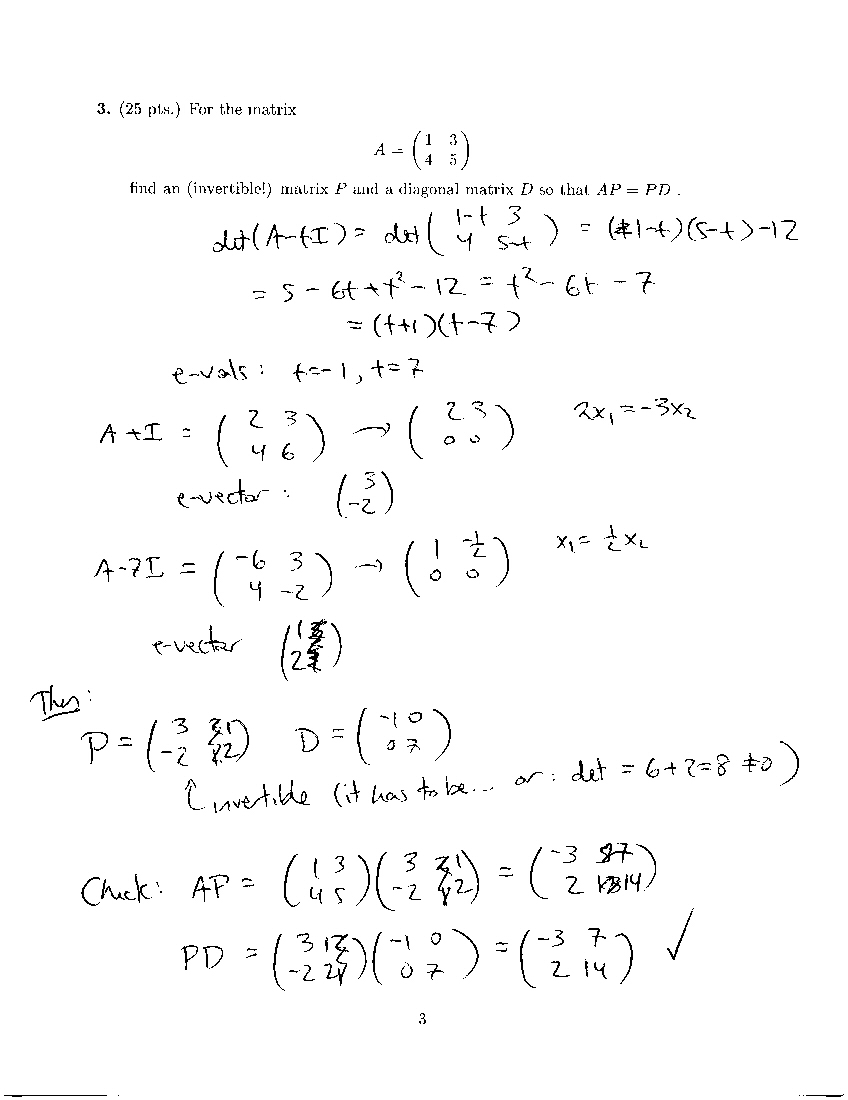 3. (25 pts.) For the matrix
A = ( 1 3 ; 4 5 )
find an (invertible!) matrix P and a diagonal matrix D so that AP = PD .
det(A-tI) = det( 1-t 3 ; 4 5-t ) = (1-t)(5-t)-12
= 5 - 6t + t² - 12 = t² - 6t - 7
= (t+1)(t-7)
e-vals : t=-1, t=7
A+I = ( 2 3 ; 4 6 ) → ( 2 3 ; 0 0 ) 2x₁=-3x₂
e-vector : ( 3 ; -2 )
A-7I = ( -6 3 ; 4 -2 ) → ( 1 -1/2 ; 0 0 ) x₁= 1/2 x₂
e-vector ( 1 ; 2 )
Thus:
P = ( 3 1 ; -2 2 ) D = ( -1 0 ; 0 7 )
↑ invertible (it has to be... or: det = 6+2=8 ≠0 )
Check: AP = ( 1 3 ; 4 5 )( 3 1 ; -2 2 ) = ( -3 7 ; 2 14 )
PD = ( 3 1 ; -2 2 )( -1 0 ; 0 7 ) = ( -3 7 ; 2 14 ) ✓
3